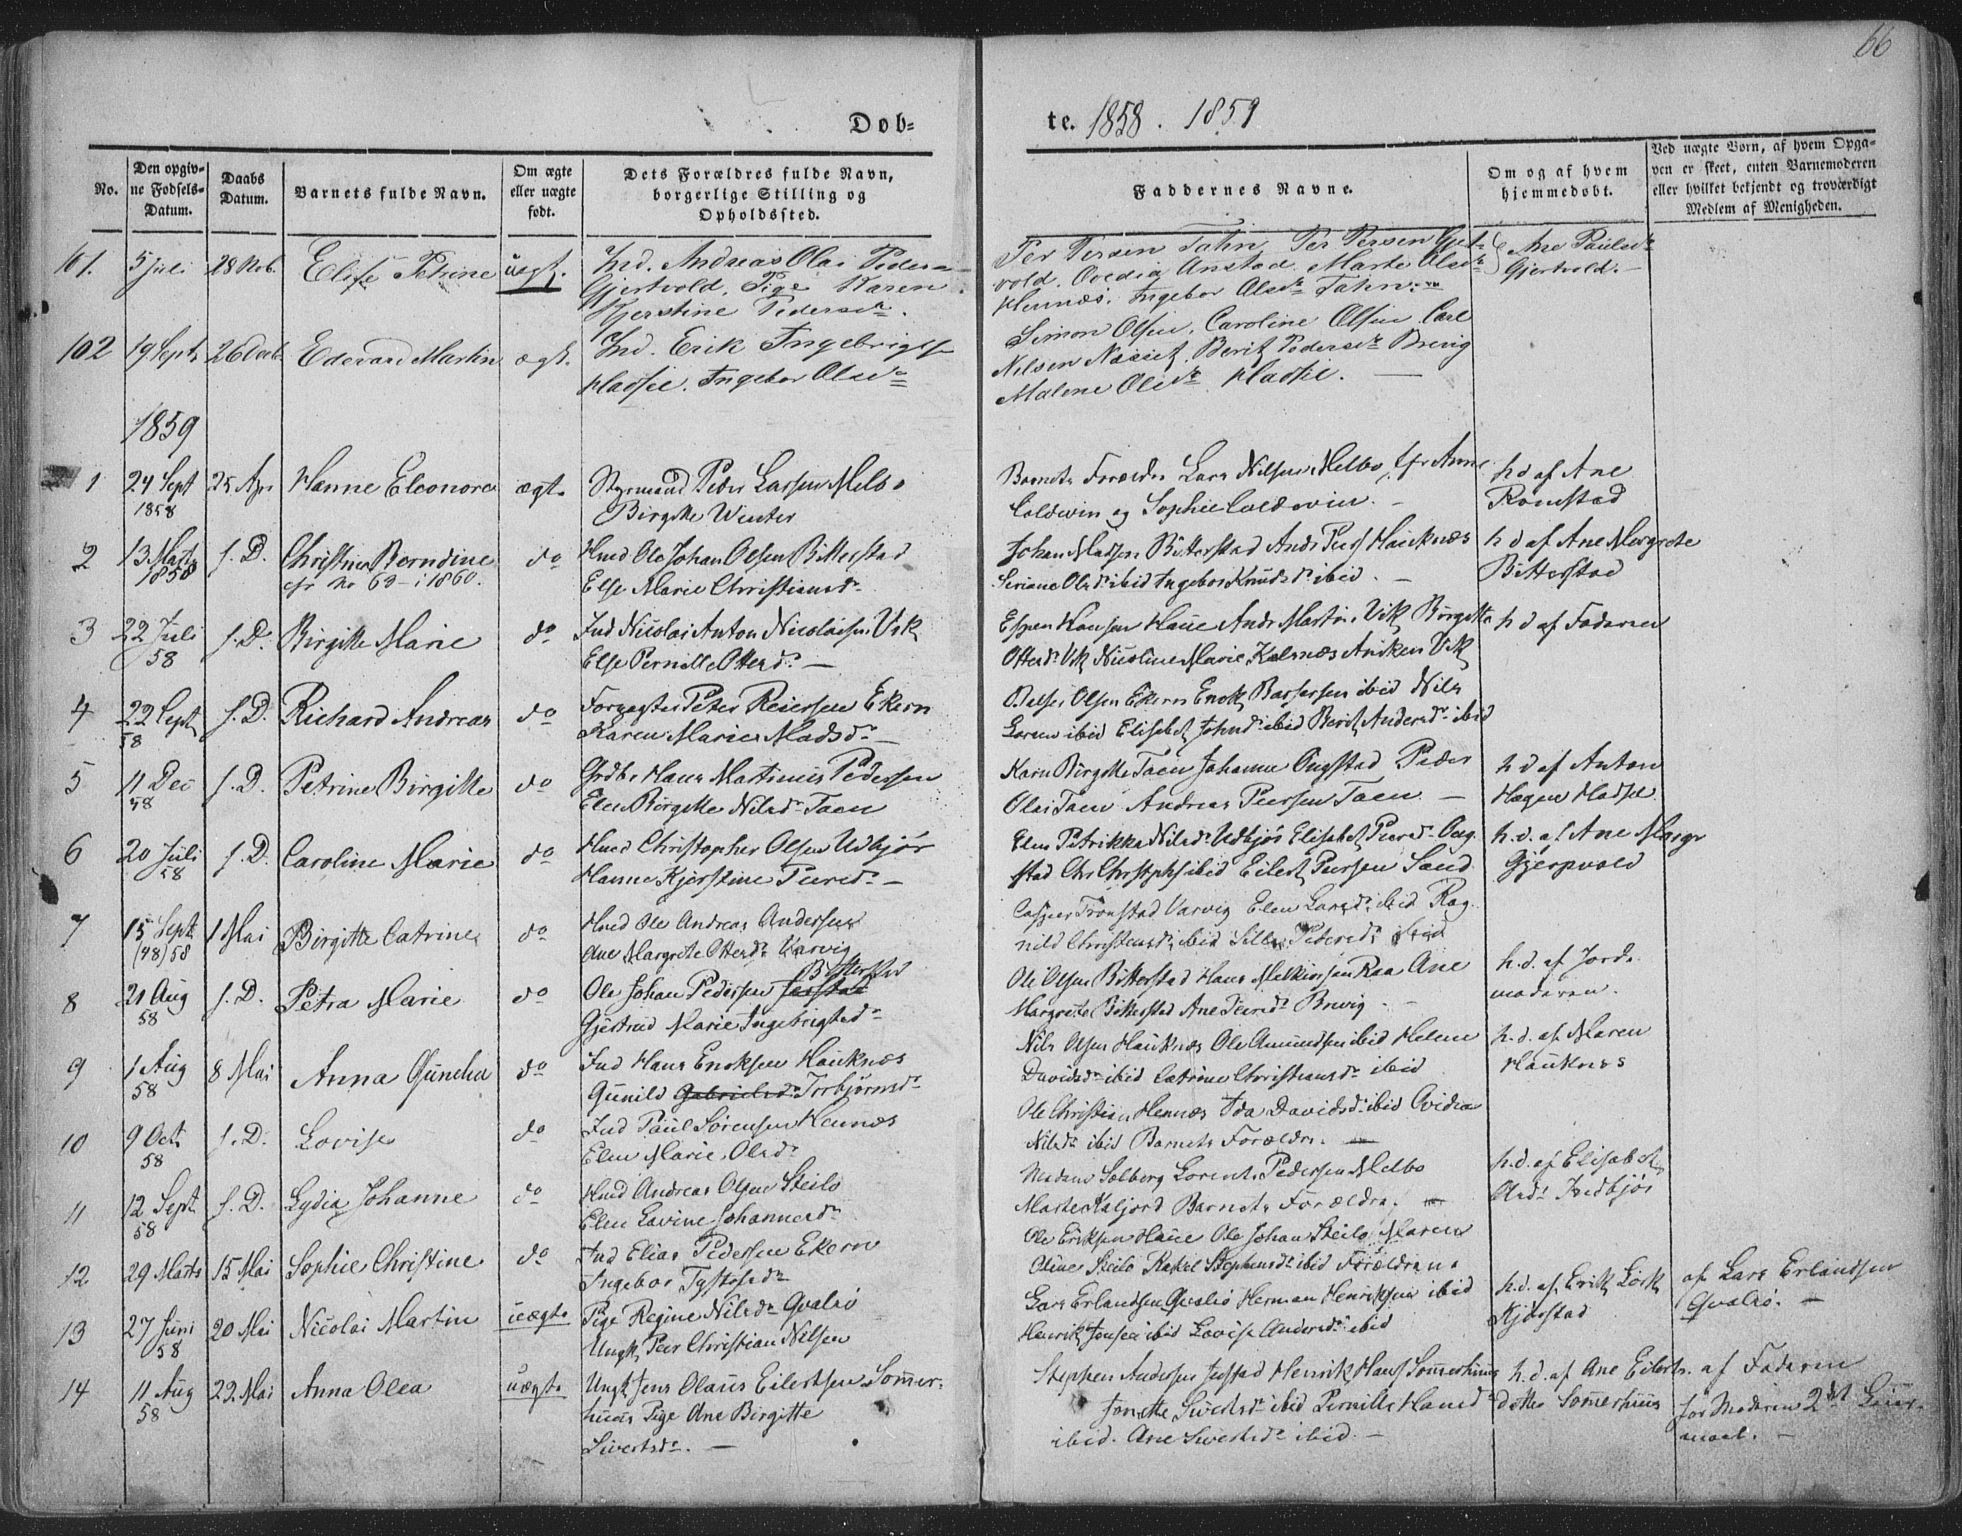 66
Døb=
te. 1858. 1859
No.
Den opgiv-
ne Fødsels-
Datum.
Daabs
Datum.
Barnets fulde Navn.
Om ægte
eller uægte
født.
Dets Forældres fulde Navn,
borgerlige Stilling og
Opholdssted.
Faddernes Navne.
Om og af hvem
hjemmedøbt.
Ved uægte Børn, af hvem Opga-
ven er skeet, enten Barnemoderen
eller hvilket bekjendt og troværdigt
Medlem af Menigheden.
101. 5 Juli 28 Nob. Elise Petrine uægt. Ind. Andreas Olai Peders
Gjertvold. Pige Karen
Kjerstine Pedersdr.
Per Persen Tahn. Per Persen Gjet-
vold. Ovedia Anstad. Marte Olsdr
Hennæs. Ingebor Olsdr Tahn.
Ane Paulsdr
Gjertvold.
102 19 Septr 26 Decbr Edevard Martin ægt. Ind. Erik Ingebrigts
Hadsel. Ingebor Olsdr
Simon Olsen. Caroline Olsen. Carl
Nelsen Næsset. Berit Pedersdr Brevig
Malene Olsdr Hadsel.
1859
1 24 Sept 25 Apr Hanne Eleonora ægte Styrmand Peder Larsen Melbo
1858 Birgitte Winter
Barnets Forældre Lars Nilsen Melbo, Jfr Anne
Coldevin og Sophie Coldevin.
hd af Ane
Romstad
2 13 Marts s. D. Christine Berndine do Hmd Ole Johan Olsen Bitterstad
1858 cfr no 69 i 1860. Else Marie Christiansdr
Johan Madsen Bitterstad Ands Peers Hauknæs
Seriane Olsdr ibid Ingebor Knudsdr ibid.
hd af Ane Margrete
Bitterstad
3 22 Juli s. D. Birgitte Marie do Ind Nicolai Anton Nicolaisen Vik
58 Else Pernille Ottersdr
Espen Hansen Haue Ands Martin Vik Birgitte
Ottersdr Vik Nicoline Marie Kalsnæs Aniken Vik
hd af Faderen
4 22 Sept s. D. Richard Andreas do Forpagter Peter Reiersen Ekern
58 Karen Marie Madsdr
Balser Olsen Ekern Enok Balsersen ibid Nils
Larsen ibid Elisabet Johnsdr ibid Berit Andersdr ibid
5 11 Dec s. D. Petrine Birgitte do Grdbr Hans Martinus Pedersen
58 Elen Birgitte Nilsdr Taen
Karn Birgitte Taen Johanna Ongstad Peder
Olai Taen Andreas Peersen Taen
hd af Anton
Hagen Hadsel
6 20 Juli s. D. Caroline Marie do Hmd Christopher Olsen Udbjør
58 Hanne Kjerstine Peersdr
Elen Petrikka Nilsdr Udbjør Elisabet Peersdr Ong-
stad Chr Christophs ibid Eilert Peersen Sand
h.d. af Ane Margr
Gjerpvold
7 15 Sept 1 Mai Birgitte Catrine do Hmd Ole Andreas Andersen
(48) 58 Ane Margrete Ottersdr Varvig
Casper Tronstad Varvig Elen Larsdr ibid Rag-
nild Christensdr ibid Sille Pedersdr ibid
8 21 Aug s. D. Petra Marie do Ole Johan Pedersen Jørstad Bitterstad
58 Gjertrud Marie Ingebrigtsdr
Ole Olsen Bitterstad Hans Melkiorsen Raa Ane
Margrete Bitterstad Ane Peersdr Brevig
h.d. af Jord-
moderen.
9 1 Aug 8 Mai Anna Gunelia do Ind Hans Enoksen Hauknæs
58 Gunild Gabrielsdr Torbjørnsdr
Nils Olsen Hauknæs Ole Amundsen ibid Helene
Davidsdr ibid Catrine Christiansdr ibid
h.d. af Maren
Hauknes
10 9 Oct s. D. Lovise do Ind Paul Sørensen Hennæs
58 Elen Marie Olsdr
Ole Christian Hennæs Ida Davidsdr ibid Ovidia
Nilsdr ibid Barnets Forældre.
11 12 Sept s. D. Lydia Johanne do Hmd Andreas Olsen Steilo
58 Elen Lavine Johannesdr
Madam Solberg Lorents Pedersen Melbo
Marte Kaljord Barnets Forældre.
h.d. af Elisabet
Olsdr Indbjør
12 29 Marts 15 Mai Sophie Christine do Ind Elias Pedersen Ekern
Ingebor Tystosdr
Ole Eriksen Haue Ole Johan Steilo Maren
Oline Steilo Rakel Stephensdr ibid Forældrene
13 27 Juni 20 Mai Nicolai Martin uægte Pige Regine Nilsdr Qvalsø
58 Ungk Peer Christian Nilsen
Lars Erlandsen Qvalsø Herman Henriksen ibid
Henrik Jensen ibid Lovise Andersdr ibid
h.d. af Erik Loik
Kjørstad
af Lars Erlandsen
Qvalsø.
14 11 Aug 22 Mai Anna Olea uægte Ungk Jens Olaus Eilertsen Sommer-
58 huus Pige Ane Birgitte
Sivertsdr.
Stephen Andersen Jørstad Henrik Hans Sommerhuus
Jonette Sivertsdr ibid Pernille Hansdr
ibid. Ane Sivertsdr ibid.
h.d. af Ane Eilerts-
datter Sommerhuus
af Faderen
for Moderen 2det Leier-
maal.